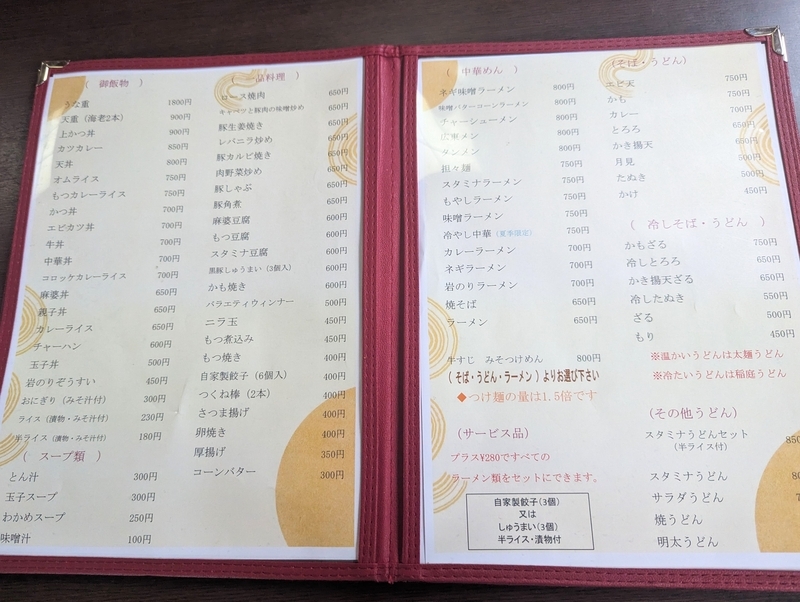 （ 御飯物 ）
うな重 1800円
天重（海老2本） 900円
上かつ丼 900円
カツカレー 850円
天丼 800円
オムライス 750円
もつカレーライス 750円
かつ丼 700円
エビカツ丼 700円
牛丼 700円
中華丼 700円
コロッケカレーライス 700円
麻婆丼 650円
親子丼 650円
カレーライス 650円
チャーハン 600円
玉子丼 500円
岩のりぞうすい 450円
おにぎり（みそ汁付） 300円
ライス（漬物・みそ汁付） 230円
半ライス（漬物・みそ汁付） 180円
（ スープ類 ）
とん汁 300円
玉子スープ 300円
わかめスープ 250円
味噌汁 100円
（ 一品料理 ）
ロース焼肉 650円
キャベツと豚肉の味噌炒め 650円
豚生姜焼き 650円
レバニラ炒め 650円
豚カルビ焼き 650円
肉野菜炒め 650円
豚しゃぶ 650円
豚角煮 650円
麻婆豆腐 600円
もつ豆腐 600円
スタミナ豆腐 600円
黒豚しゅうまい（3個入） 600円
かも焼き 600円
バラエティウィンナー 500円
ニラ玉 450円
もつ煮込み 450円
もつ焼き 400円
自家製餃子（6個入） 400円
つくね棒（2本） 400円
さつま揚げ 400円
卵焼き 400円
厚揚げ 350円
コーンバター 300円
（ 中華めん ）
ネギ味噌ラーメン 800円
味噌バターコーンラーメン 800円
チャーシューメン 800円
広東メン 800円
タンメン 800円
担々麺 750円
スタミナラーメン 750円
もやしラーメン 750円
味噌ラーメン 750円
冷やし中華（夏季限定） 750円
カレーラーメン 700円
ネギラーメン 700円
岩のりラーメン 700円
焼そば 650円
ラーメン 650円
牛すじ みそつけめん 800円
（ そば・うどん・ラーメン ）よりお選び下さい
◆つけ麺の量は1.5倍です
（サービス品）
プラス¥280ですべての
ラーメン類をセットにできます。
自家製餃子（3個）
又は
しゅうまい（3個）
半ライス・漬物付
（そば・うどん）
エビ天 750円
かも 750円
カレー 700円
とろろ 650円
かき揚天 650円
月見 500円
たぬき 500円
かけ 450円
（ 冷しそば・うどん ）
かもざる 750円
冷しとろろ 650円
かき揚天ざる 650円
冷したぬき 550円
ざる 500円
もり 450円
※温かいうどんは太麺うどん
※冷たいうどんは稲庭うどん
（その他うどん）
スタミナうどんセット
（半ライス付）
スタミナうどん
サラダうどん
焼うどん
明太うどん